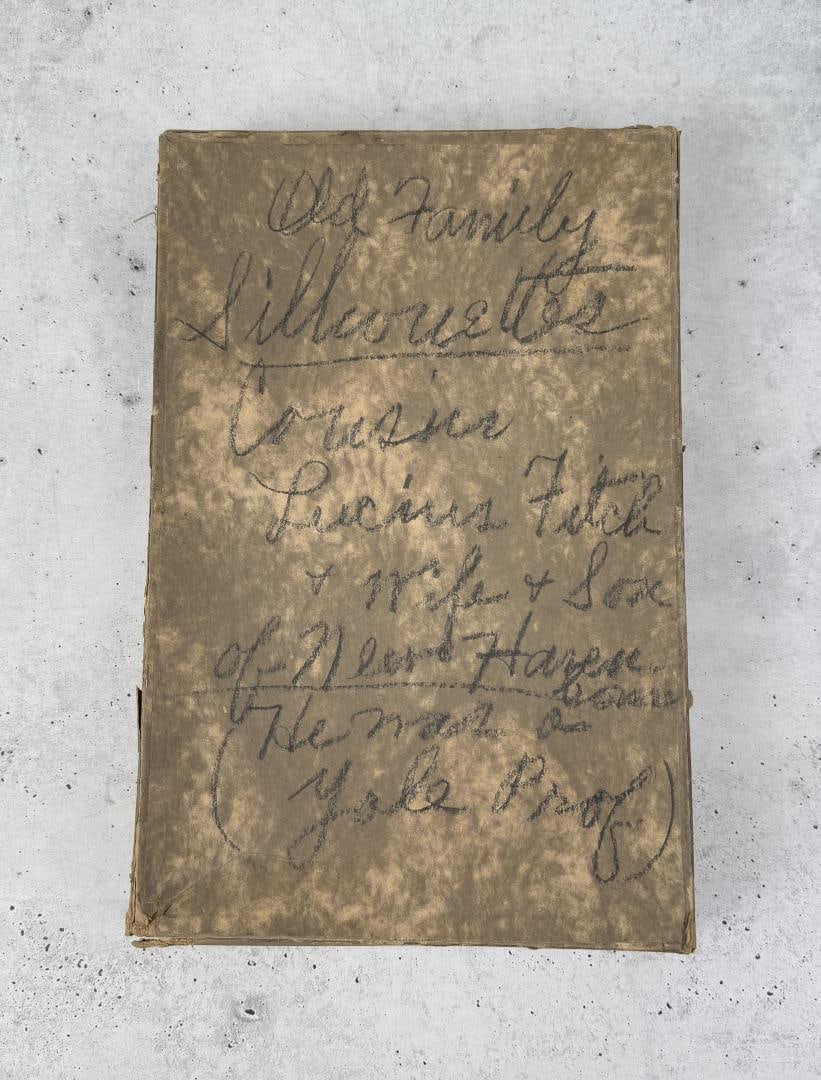 Old Family
Silhouettes
Cousin
Lucius Fitch
+ Wife + Son
of New Haven
Conn
(He was a
Yale Prof)